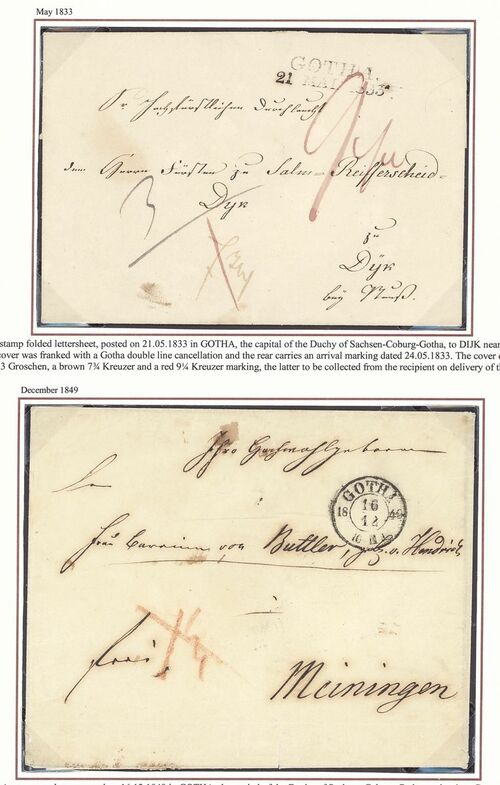 May 1833
GOTHA.
21 MAI 1833
Sr Hochfürstlichen Durchlaucht
dem Herrn Fürsten zu Salm-Reifferscheid-
Dyk
zu
Dÿk
bey Neuß.
3
stamp folded lettersheet, posted on 21.05.1833 in GOTHA, the capital of the Duchy of Sachsen-Coburg-Gotha, to DIJK near
cover was franked with a Gotha double line cancellation and the rear carries an arrival marking dated 24.05.1833. The cover
3 Groschen, a brown 7¾ Kreuzer and a red 9¼ Kreuzer marking, the latter to be collected from the recipient on delivery of th
December 1849
Ihro Hochwohlgeboren
GOTHA
18 16 49
12
Frau von Buttler, geb. v.
frei
Meiningen